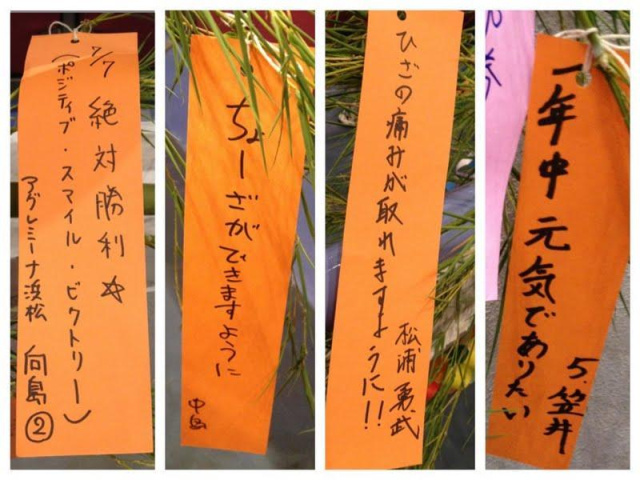 7/7 絶対勝利☆
(ポジティブ・スマイル・ビクトリー)
アグレミーナ浜松 向島②
ちょーざができますように
中島
ひざの痛みが取れますように!!
松浦勇武
一年中元気でありたい
5.笠井